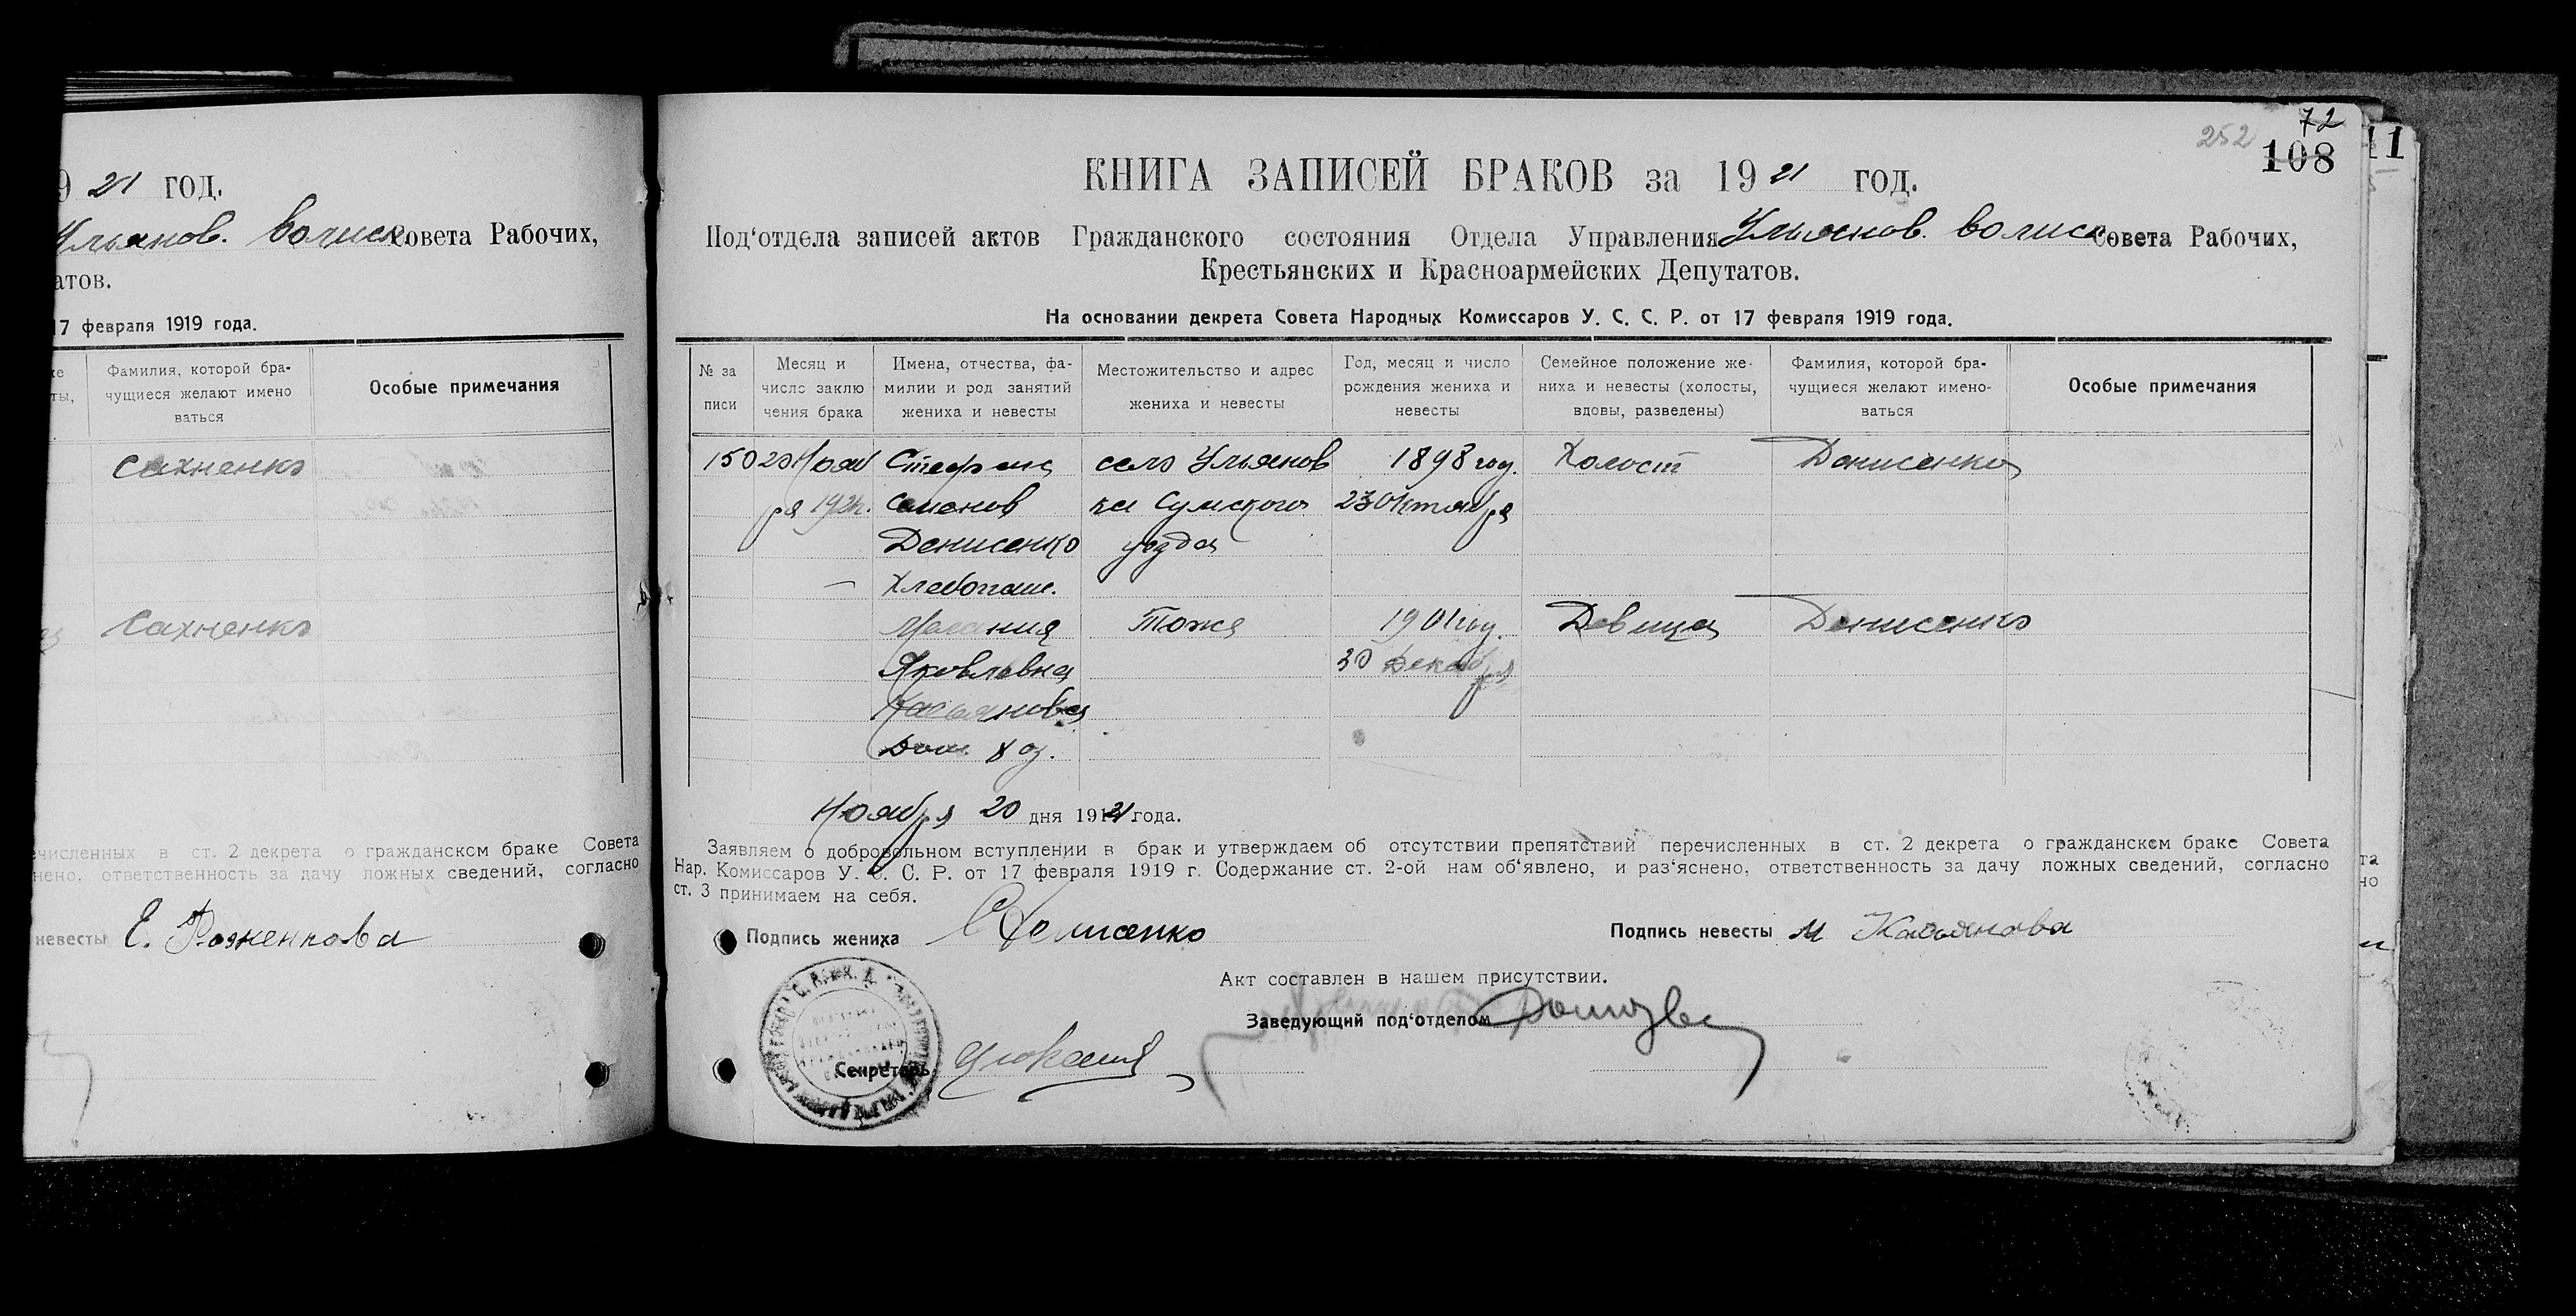 9 21 год.
Ульянов. волиск. Совета Рабочих,
атов.
17 февраля 1919 года.
же
ты,
Фамилия, которой бра-
чущиеся желают имено
ваться
Особые примечания
Сахненко
Сахненко
ечисленных в ст. 2 декрета о гражданском браке Совета
нено, ответственность за дачу ложных сведений, согласно
невесты Е. Роженкова
72
252
108
11
КНИГА ЗАПИСЕЙ БРАКОВ за 19 21 год.
Под‘отдела записей актов Гражданского состояния Отдела Управления Ульянов. волиск. Совета Рабочих,
Крестьянских и Красноармейских Депутатов.
На основании декрета Совета Народных Комиссаров У. С. С. Р. от 17 февраля 1919 года.
№ за
писи
Месяц и
число заклю
чения брака
Имена, отчества, фа-
милии и род занятий
жениха и невесты
Местожительство и адрес
жениха и невесты
Год, месяц и число
рождения жениха и
невесты
Семейное положение же-
ниха и невесты (холосты,
вдовы, разведены)
Фамилия, которой бра-
чущиеся желают имено-
ваться
Особые примечания
150 20 Нояб Стефана село Ульянов 1898 год. Холост Денисенко
ря 1921г. Семенов ка Сумского 23 Октября
Денисенко уезда
— Хлебопаш.
Мелания Тоже 1901 год. Девица Денисенко
Яковлевна 30 Декабря
Касьянова
Дом. хоз.
Ноября 20 дня 1921 года.
Заявляем о добровольном вступлении в брак и утверждаем об отсутствии препятствий перечисленных в ст. 2 декрета о гражданском браке Совета
Нар. Комиссаров У. С. С. Р. от 17 февраля 1919 г. Содержание ст. 2-ой нам об‘явлено, и раз‘яснено, ответственность за дачу ложных сведений, согласно
ст. 3 принимаем на себя.
Подпись жениха С Денисенко
Подпись невесты М Касьянова
Акт составлен в нашем присутствии.
Заведующий под‘отделом
Секретарь